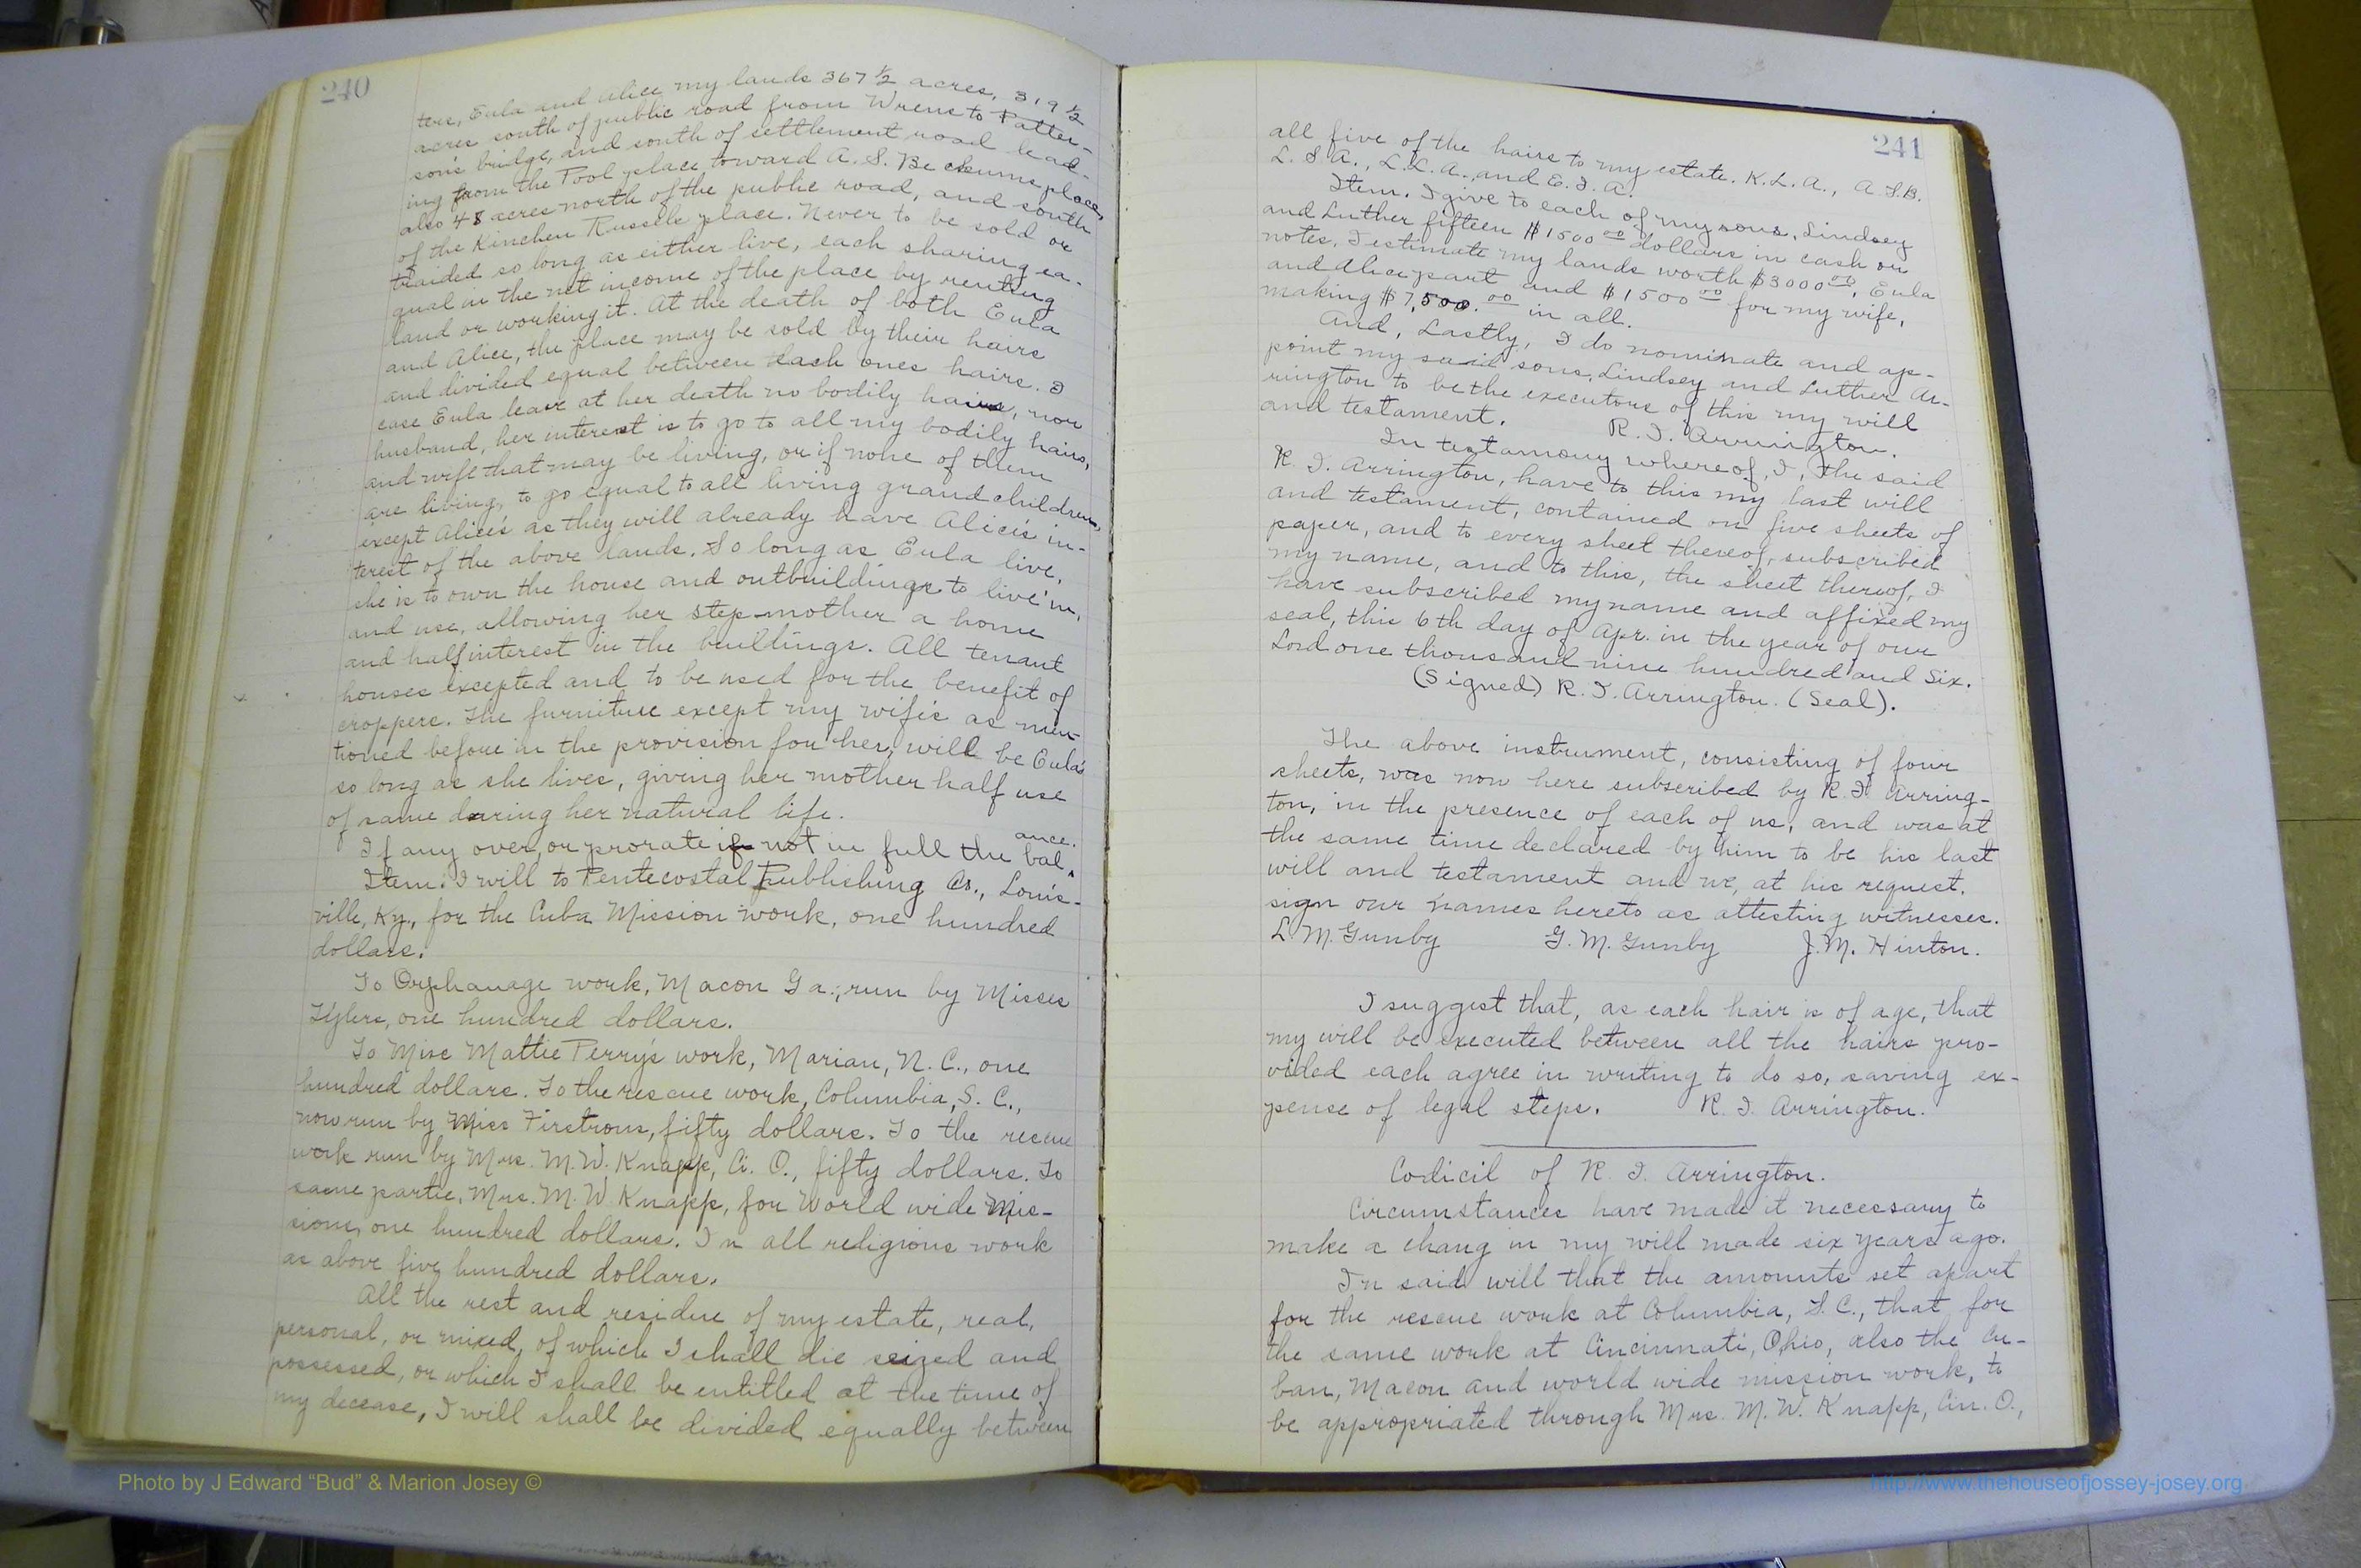 240
ters, Eula and Alice my lands 367 1/2 acres, 319 1/2
acres south of public road from Wrens to Patter-
son's bridge, and south of settlement road lead-
ing from the Pool place toward A. S. Be chums place,
also 48 acres north of the public road, and south
of the Kinchen Russele place. Never to be sold or
traided so long as either live, each sharing ea-
qual in the net income of the place by renting
land or working it. At the death of both Eula
and Alice, the place may be sold by their hairs
and divided equal between each ones hairs. I
case Eula leave at her death no bodily hairs, nor
husband, her interest is to go to all my bodily hairs,
and wife that may be living, or if none of them
are living, to go equal to all living grandchildren,
except Alice's as they will already have Alice's in-
terest of the above lands. So long as Eula live,
she is to own the house and outbuildings to live in,
and use, allowing her step-mother a home
and half interest in the buildings. All tenant
houses excepted and to be used for the benefit of
croppers. The furniture except my wife's as men-
tioned before in the provision for her, will be Eula's
so long as she lives, giving her mother half use
of same during her natural life.
If any over, or prorate if not in full the balance.
Item. I will to Pentecostal Publishing Co., Louis-
ville, Ky., for the Cuba Mission work, one hundred
dollars.
To Orphanage work, Macon Ga., run by Misses
one hundred dollars.
To Miss Mattie Perry's work, Marian, N. C., one
hundred dollars. To the rescue work, Columbia, S. C.,
now run by Miss Firstrom, fifty dollars. To the rescue
work run by Mrs. M. W. Knapp, Ci. O., fifty dollars. To
same partie, Mrs. M. W. Knapp, for World wide Mis-
sions, one hundred dollars. In all religious work
as above five hundred dollars.
All the rest and residue of my estate, real,
personal, or mixed, of which I shall die seized and
possessed, or which I shall be entitled at the time of
my decease, I will shall be divided equally between
241
all five of the hairs to my estate. K. L. A., A. S. B.
L. S. A., L. L. A., and E. I. A.
Item. I give to each of my sons, Lindsey
and Luther fifteen $1500 00 dollars in cash or
notes, I estimate my lands worth $3000 00, Eula
and Alice part and $1500 00 for my wife,
making $7,500. 00 in all.
And, Lastly, I do nominate and ap-
point my said sons, Lindsey and Luther Ar-
rington to be the executors of this my will
and testament. R. I. Arrington.
In testamony whereof, I, the said
R. I. Arrington, have to this my last will
and testament, contained on five sheets of
paper, and to every sheet thereof, subscribed
my name, and to this, the sheet thereof, I
have subscribed my name and affixed my
seal, this 6th day of Apr. in the year of our
Lord one thousand nine hundred and Six.
(Signed) R. I. Arrington. (Seal).
The above instrument, consisting of four
sheets, was now here subscribed by R. I. Arring-
ton, in the presence of each of us, and was at
the same time declared by him to be his last
will and testament and we, at his request,
sign our names hereto as attesting witnesses.
L. M. Gunby G. M. Gunby J. M. Hinton.
I suggest that, as each hair is of age, that
my will be executed between all the hairs pro-
vided each agree in writing to do so, saving ex-
pense of legal steps. R. I. Arrington.
Codicil of R. I. Arrington.
Circumstances have made it necessary to
make a chang in my will made six years ago.
In said will that the amounts set apart
for the rescue work at Columbia, S. C., that for
the same work at Cincinnati, Ohio, also the Cu-
ban, Macon and world wide mission work, to
be appropriated through Mrs. M. W. Knapp, Cin. O.,
Photo by J Edward “Bud” & Marion Josey ©
http://www.thehouseofjossey-josey.org